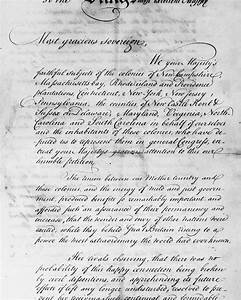 To the King's most Excellent Majesty
Most gracious Sovereign,
We your Majesty's
faithful subjects of the colonies of New hampshire,
Massachusetts bay, Rhode island and Providence
plantations, Connecticut, New York, New Jersey,
Pennsylvania, the counties of New Castle Kent &
Sussex on Delaware, Maryland, Virginia, North
Carolina and South Carolina in behalf of ourselves
and the inhabitants of these colonies, who have de
puted us to represent them in general Congress, in
treat your Majestys gracious attention to this our
humble petition.
The union between our Mother Country and
these colonies, and the energy of mild and just govern
ment, produced benefits so remarkably important, and
afforded such an assurance of their permanency and
increase, that the wonder and envy of other Nations were
excited, while they beheld Great Britain riseing to a
power the most extraordinary the world had ever known.
Her rivals observing, that there was no
probability of this happy connection being broken
by civil dissentions, and apprehending its future
effects if left any longer undisturbed, resolved to
prevent her receiving such continual and formidable